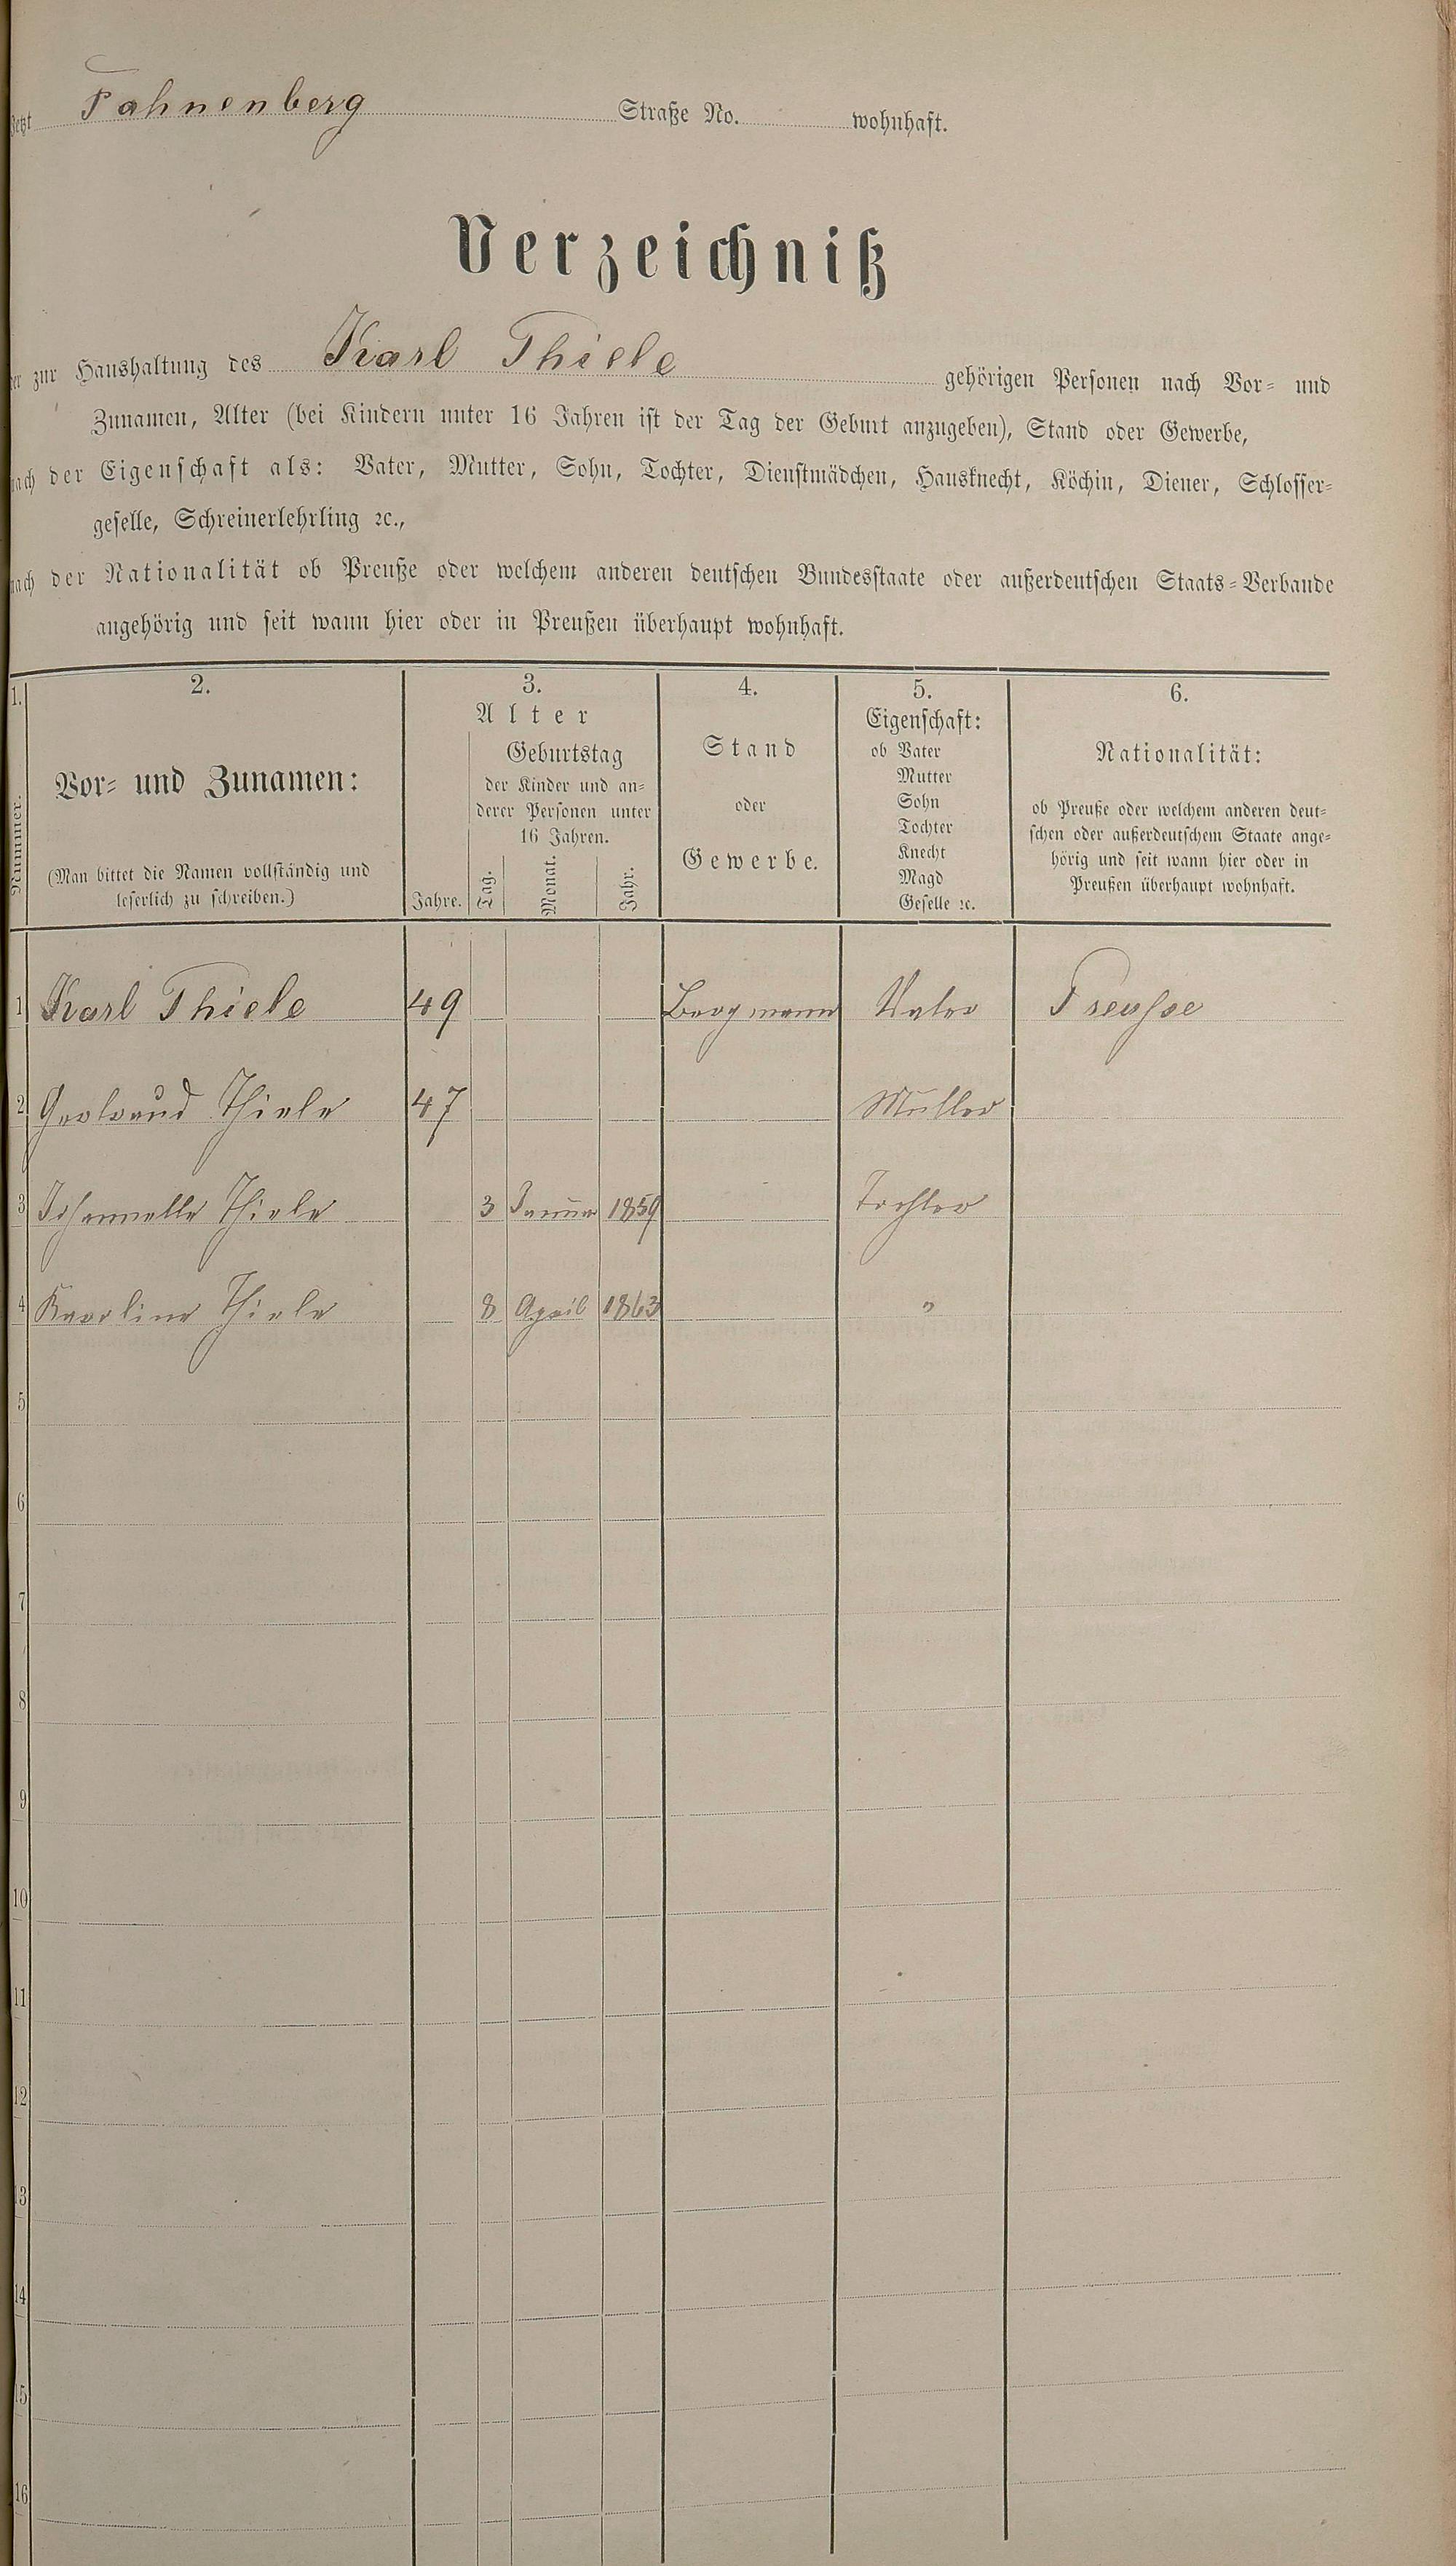 Jetzt Fahnenberg Straße No. wohnhaft.
Verzeichniß
der zur Haushaltung des Karl Thiele gehörigen Personen nach Vor= und
Zunamen, Alter (bei Kindern unter 16 Jahren ist der Tag der Geburt anzugeben), Stand oder Gewerbe,
nach der Eigenschaft als: Vater, Mutter, Sohn, Tochter, Dienstmädchen, Hausknecht, Köchin, Diener, Schlosser=
geselle, Schreinerlehrling ꝛc.,
nach der Nationalität ob Preuße oder welchem anderen deutschen Bundesstaate oder außerdeutschen Staats=Verbande
angehörig und seit wann hier oder in Preußen überhaupt wohnhaft.
1.
Nummer.
2.
Vor= und Zunamen:
(Man bittet die Namen vollständig und
leserlich zu schreiben.)
3.
Alter
Jahre.
Geburtstag
der Kinder und an=
derer Personen unter
16 Jahren.
Tag.
Monat.
Jahr.
4.
Stand
oder
Gewerbe.
5.
Eigenschaft:
ob Vater
Mutter
Sohn
Tochter
Knecht
Magd
Geselle ꝛc.
6.
Nationalität:
ob Preuße oder welchem anderen deut=
schen oder außerdeutschem Staate ange=
hörig und seit wann hier oder in
Preußen überhaupt wohnhaft.
1 Karl Thiele 49 Bergmann Vater Preusse
2 Gertraud Thiele 47 Mutter
3 Thiele 3 Januar 1859 Tochter
4 Karoline Thiele 8 April 1863 "
5
6
7
8
9
10
11
12
13
14
15
16